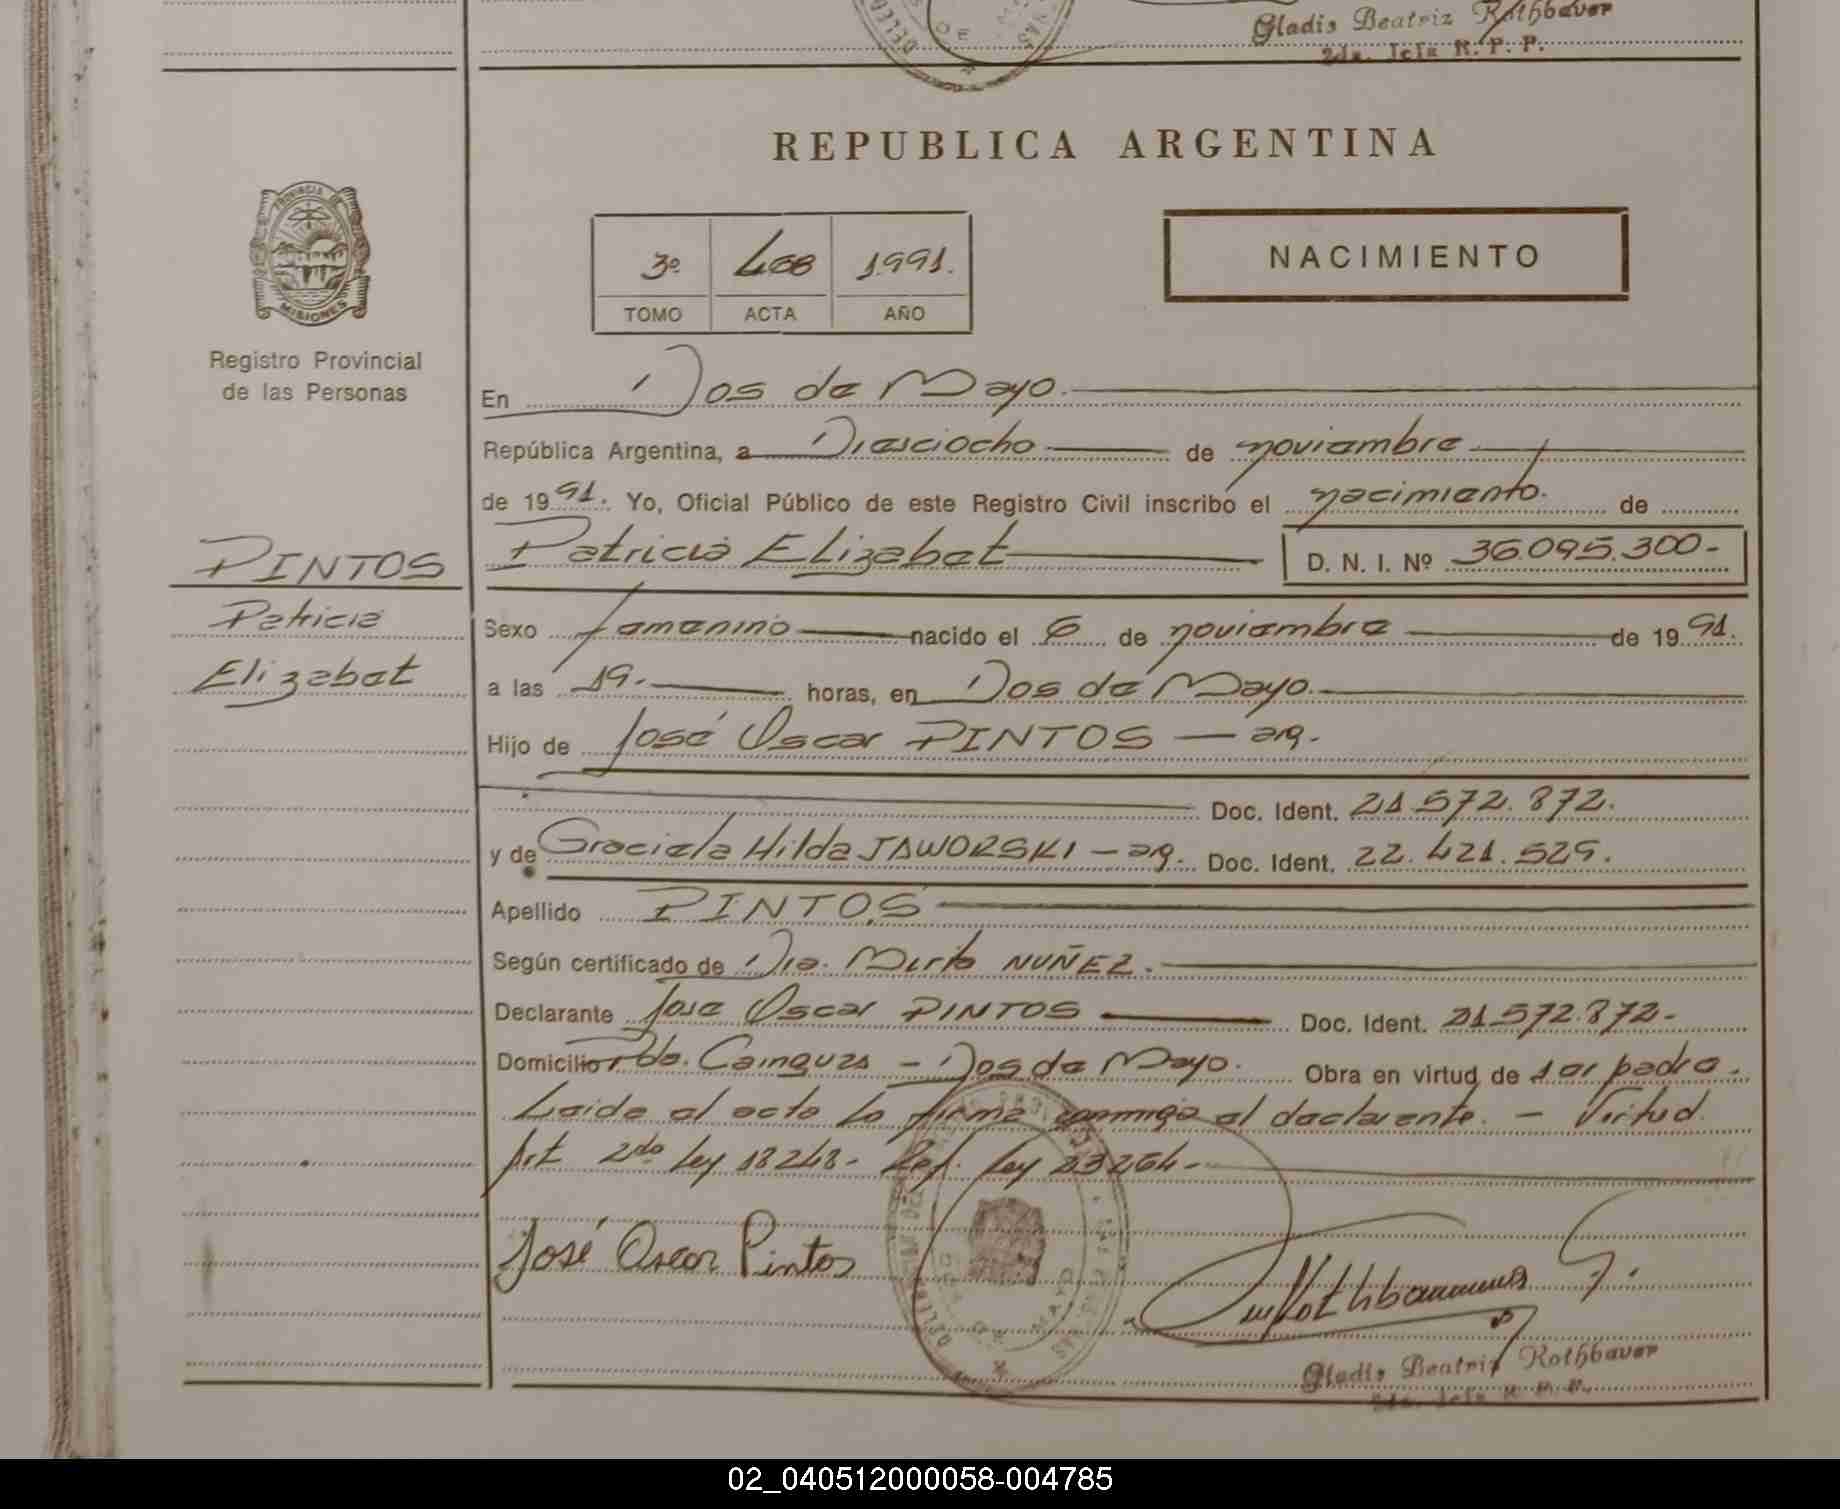 Gladis Beatriz Rothbauer
2da. Jefa R. P. P.
REPUBLICA ARGENTINA
PROVINCIA DE
MISIONES
Registro Provincial
de las Personas
3º 408 1991.
TOMO ACTA AÑO
NACIMIENTO
En Dos de Mayo.
República Argentina, a Diesciocho de noviembre
de 1991. Yo, Oficial Público de este Registro Civil inscribo el nacimiento. de
PINTOS
Patricia
Elizabet
Patricia Elizabet D. N. I. Nº 36.095.300-
Sexo femenino nacido el 6 de noviembre de 1991.
a las 19. horas, en Dos de Mayo.
Hijo de José Oscar PINTOS — arg.
Doc. Ident. 21.572.872.
y de Graciela Hilda JAWORSKI - arg. Doc. Ident. 22.421.529.
Apellido PINTOS
Según certificado de Dra. Mirta NUÑEZ.
Declarante José Oscar PINTOS Doc. Ident. 21.572.872-
Domicilio Pdo. Cainguas - Dos de Mayo. Obra en virtud de ser padre.
Leida el acta la firma conmigo el declarante. - Virtud
Art 2do ley 18248- Ref. ley 23264-
José Oscar Pintos
Gladis Beatriz Rothbauer
2da. Jefa R. P. P.
02_040512000058-004785